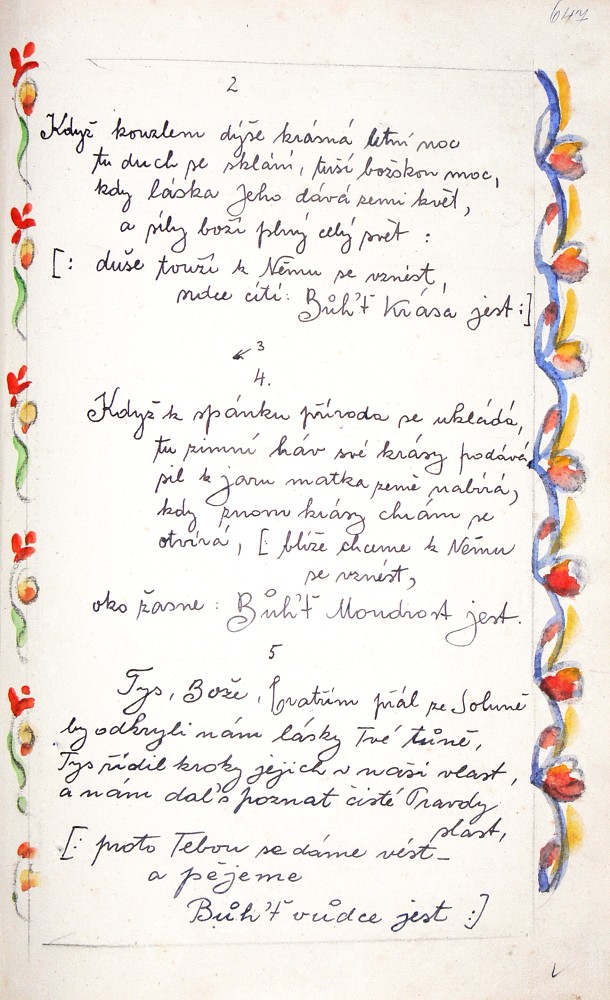 647
2
Když kouzlem dýše krásná letní noc
tu duch se sklání, tuší božskou moc,
kdy láska Jeho dává zemi květ,
a síly boží plný celý svět :
[: duše touží k Němu se vznést,
srdce cítí: Bůh'ť Krása jest :]
3
4.
Když k spánku příroda se ukládá,
tu zimní háv své krásy podává
sil k jaru matka země nabírá,
kdy znovu krásy chrám se
otvírá, [ blíže chceme k Němu
se vznést,
oko žasne : Bůh'ť Moudrost jest.
5
Tys, Bože, bratřím přál ze Soluně
by odkryli nám lásky Tvé tůně,
Tys řídil kroky jejich v naši vlast,
a nám dal's poznat čisté Pravdy
slast,
[: proto Tebou se dáme vést_
a pějeme
Bůh'ť vůdce jest :]